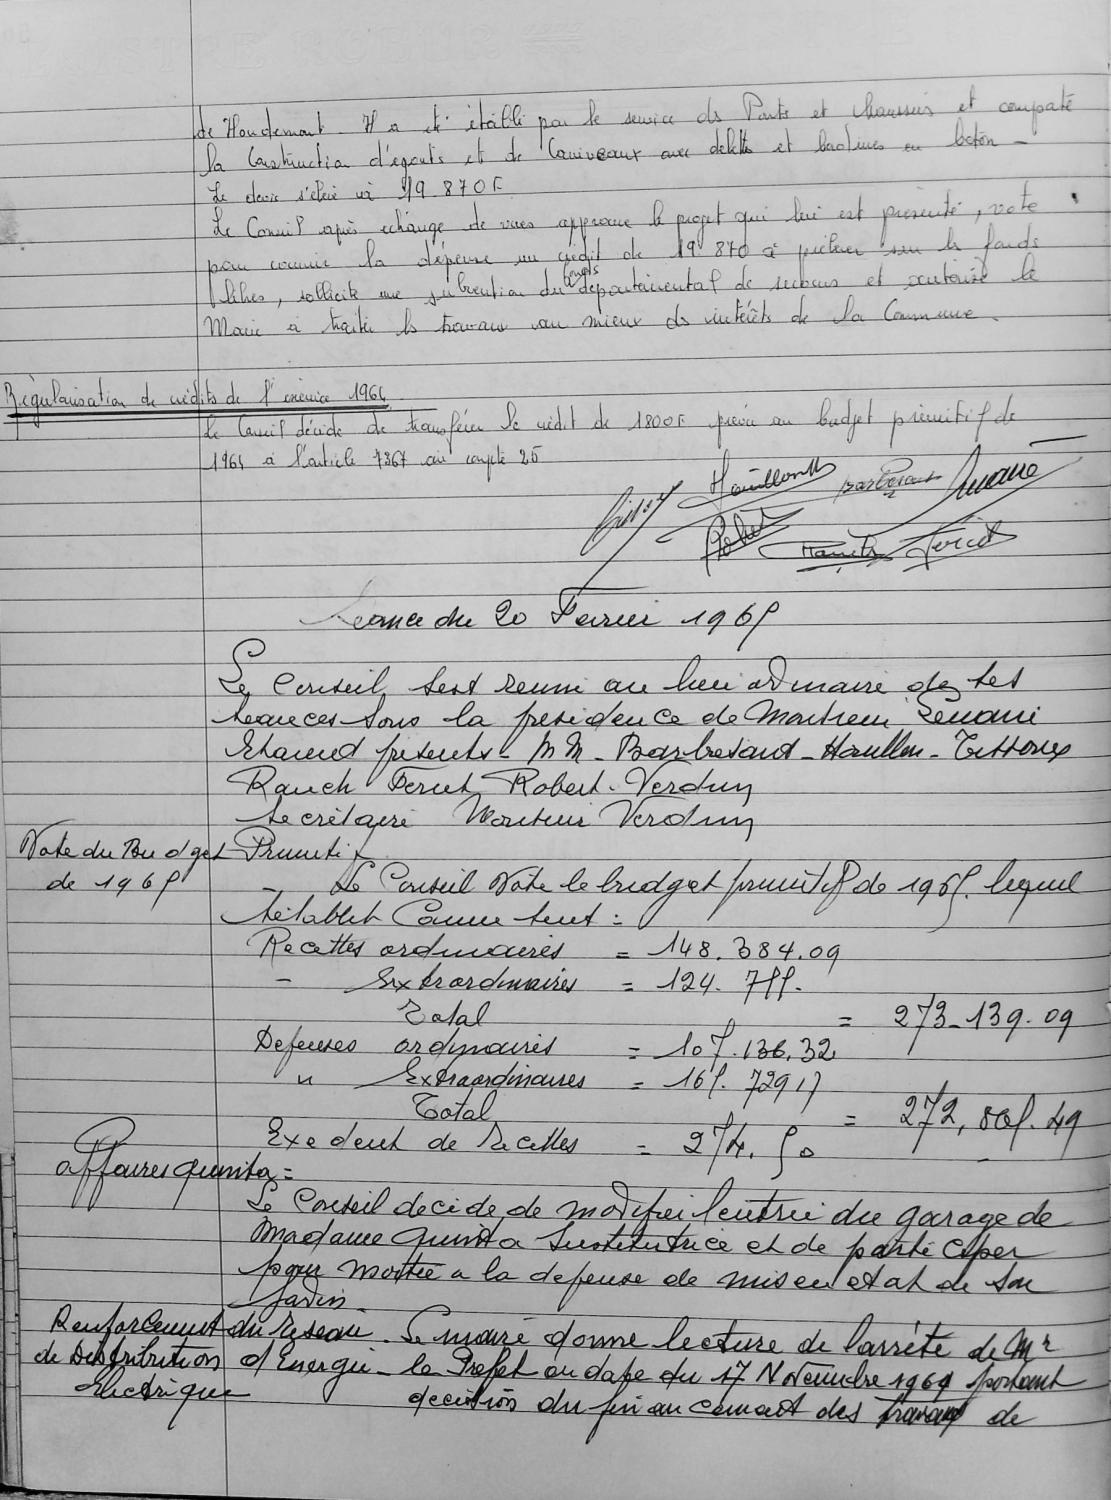 de Houdemont. Il a été établi par le service des Ponts et Chaussées et comporte
la Construction d'égouts et de Caniveaux avec dalles et bordures en béton -
Le devis s'élève à 19 870 F
Le Conseil après échange de vues approuve le projet qui lui est présenté, vote
pour couvrir la dépense un crédit de 19 870 à prélever sur les fonds
libres, sollicite une subvention du fonds départemental de secours et autorise le
Maire à traiter les travaux au mieux des intérêts de la Commune.
Régularisation de crédits de l'exercice 1964
Le Conseil décide de transférer le crédit de 1800F prévu au budget primitif de
1964 à l'article 7367 au compte 25
Séance du 20 Fevrier 1965
Le Conseil sest reuni au lieu ordinaire de ses
seances sous la presidence de Monsieur
Etaient présents - MM - Barbesant - Houllon -
Rauch Feriet Robert - Verdun
Secrétaire Monsieur Verdun
Vote du Budget Primitif
de 1965 - Le Conseil Vote le budget primitif de 1965. lequel
sétablit Comme suit :
Recettes ordinaires = 148.384.09
- Extraordinaires = 124. 755.
Total = 273-139.09
Depenses ordinaires = 107.136.32
" Extraordinaires = 165. 729 17
Total = 272, 865. 49
Exedent de recettes = 274. 50
affaires quinita =
Le Conseil decide de modifier lentrée du garage de
Madame Institutrice et de participer
pour moitié a la depense de mise en etat de son
Jardin
Renforcement du reseau. Le maire donne lecture de larrête de Mr
de Distribution d'Energie - le Préfet en date du 17 Novembre 1964 portant
électrique decision du financement des travaux de